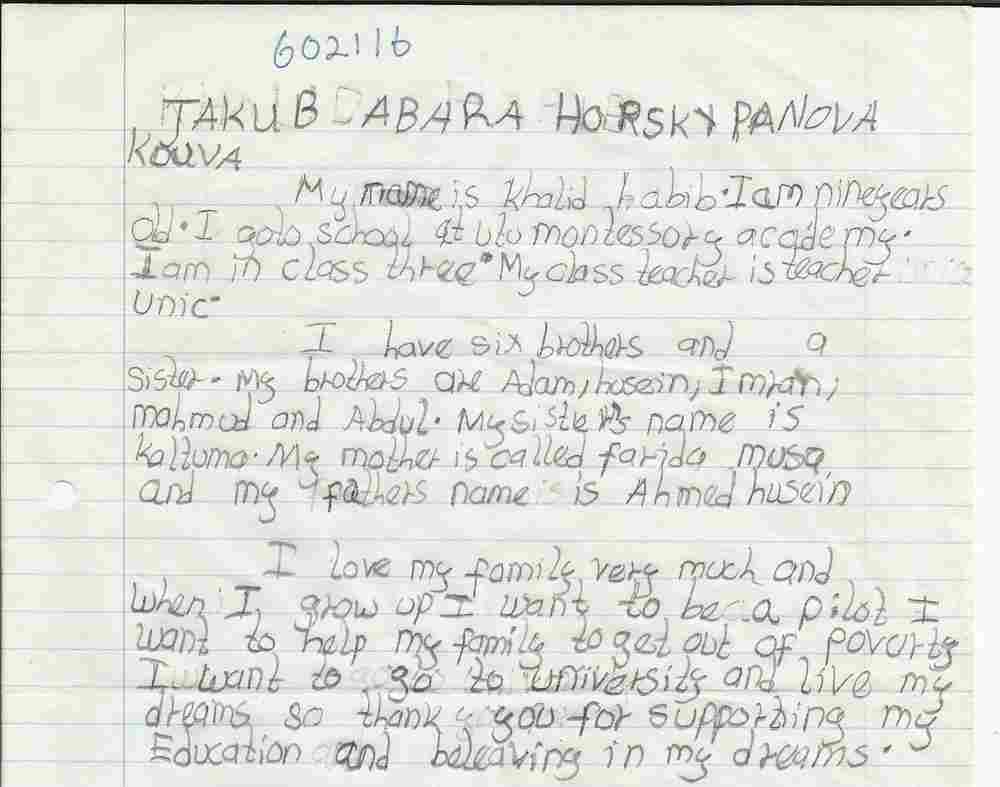 602116
JAKUB BABARA HORSKY PANOVA
KOUVA
My name is Khalid habib. I am nineyears
old. I goto school at ulu montessory academy.
I am in class three. My class teacher is teacher
Unic.
I have six brothers and a
Sister. My brothers are Adam, husein, Imran,
mahmud and Abdul. My sister's name is
Kaltuma. My mother is called farida musa
and my fathers name is Ahmed husein
I love my family very much and
when I grow up I want to be a pilot I
want to help my family to get out of poverty
I want to go to university and live my
dreams so thank you for supporting my
Education and beleaving in my dreams.